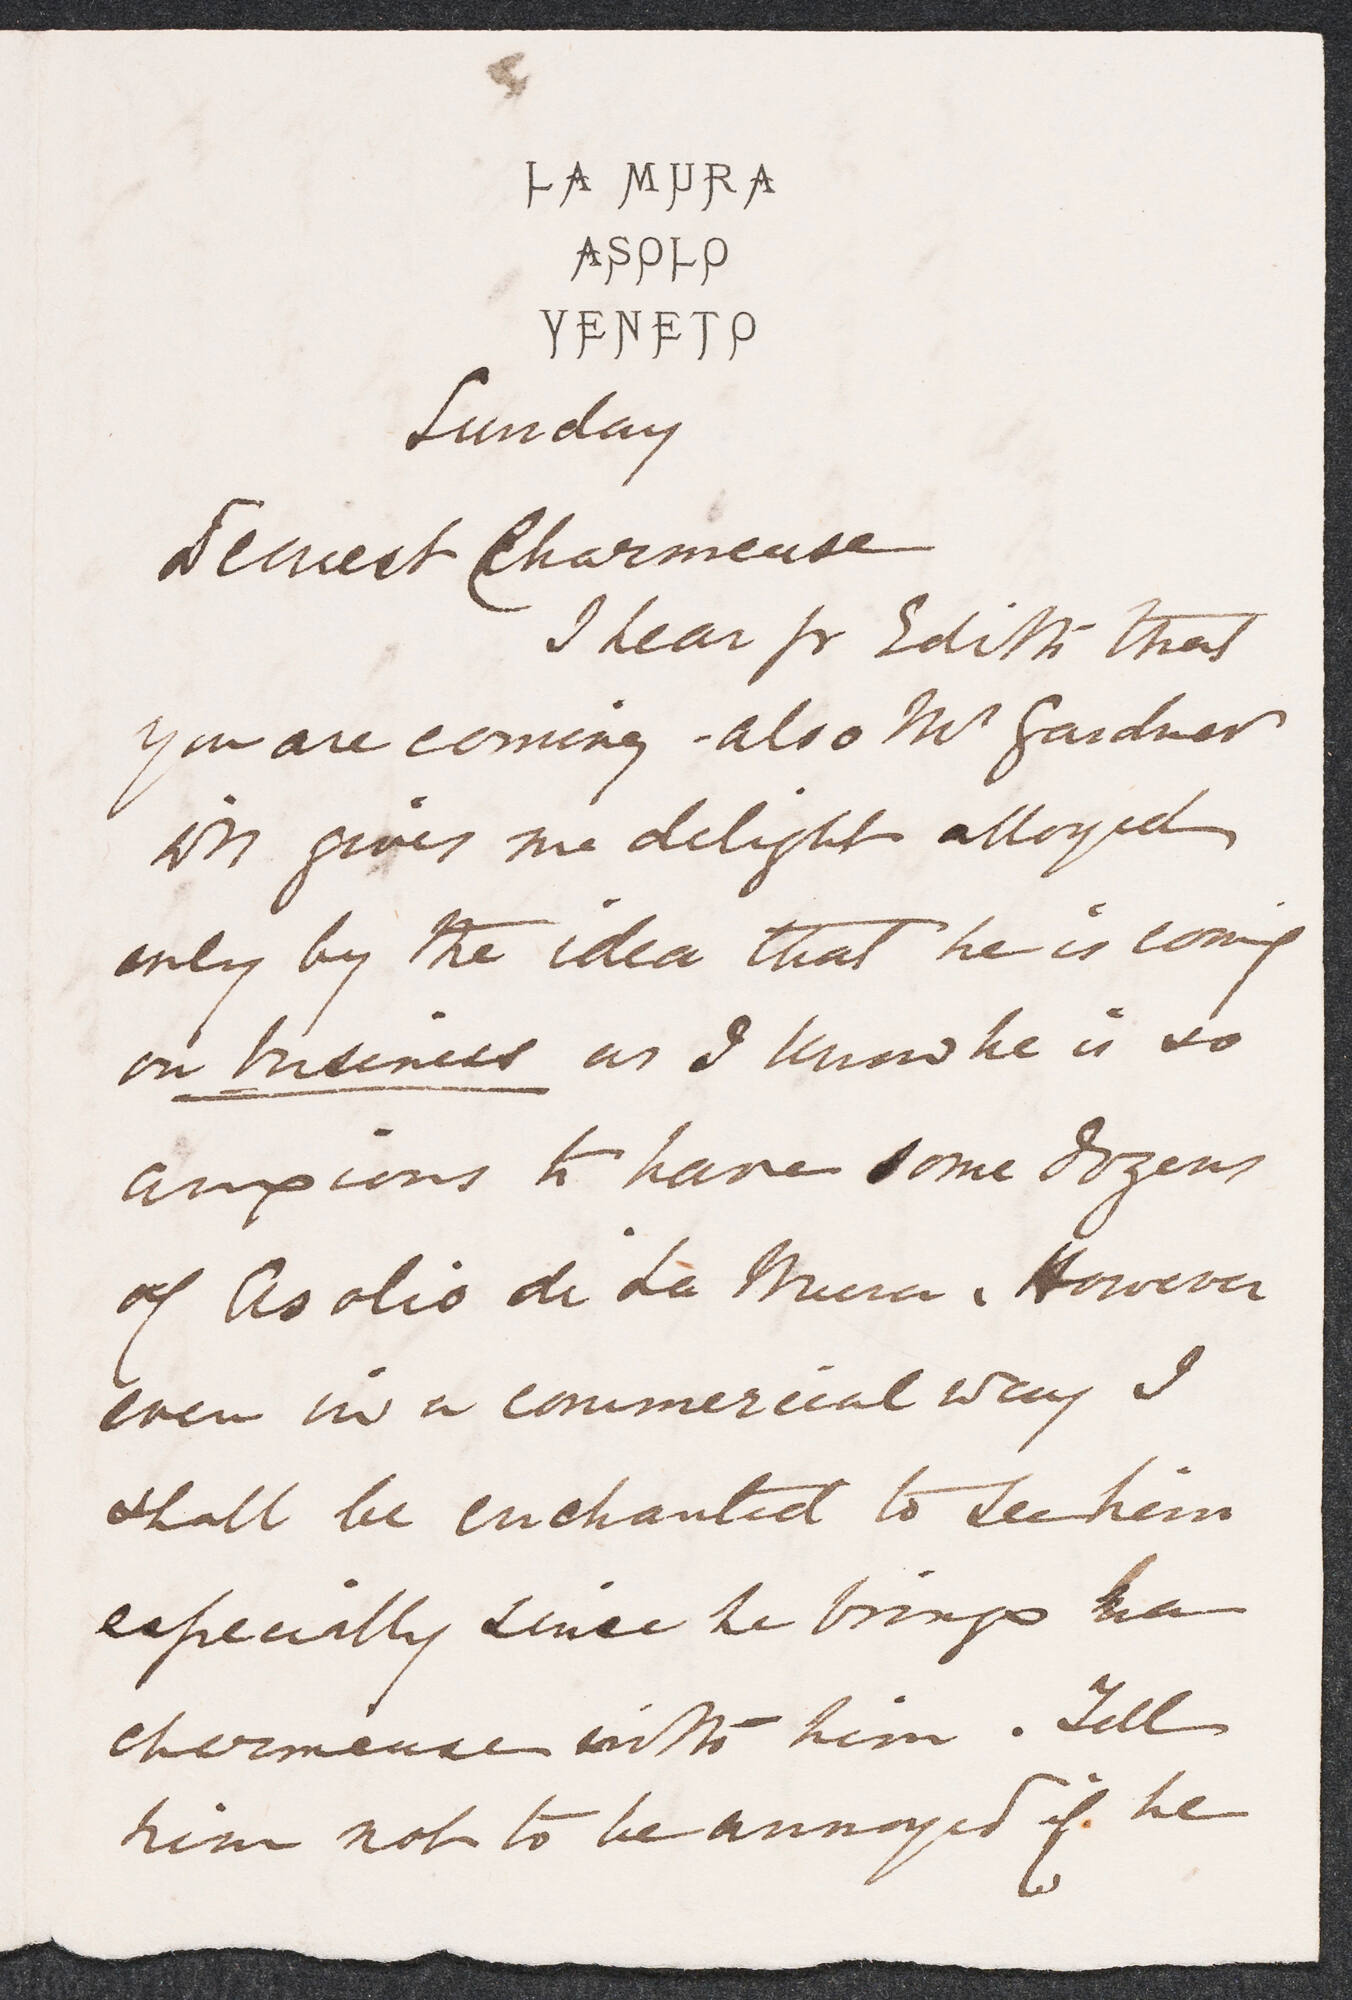 LA MURA
ASOLO
VENETO
Sunday
Dearest Charmeuse
I hear fr Edith that
you are coming - also Mr Gardner
wh gives me delight alloyed
only by the idea that he is coming
on business as I know he is so
anxious to have some dozens
of Asolio di La Mura. However
even in a commercial way I
shall be enchanted to see him
especially since he brings la
charmeuse with him. Tell
him not to be annoyed if he